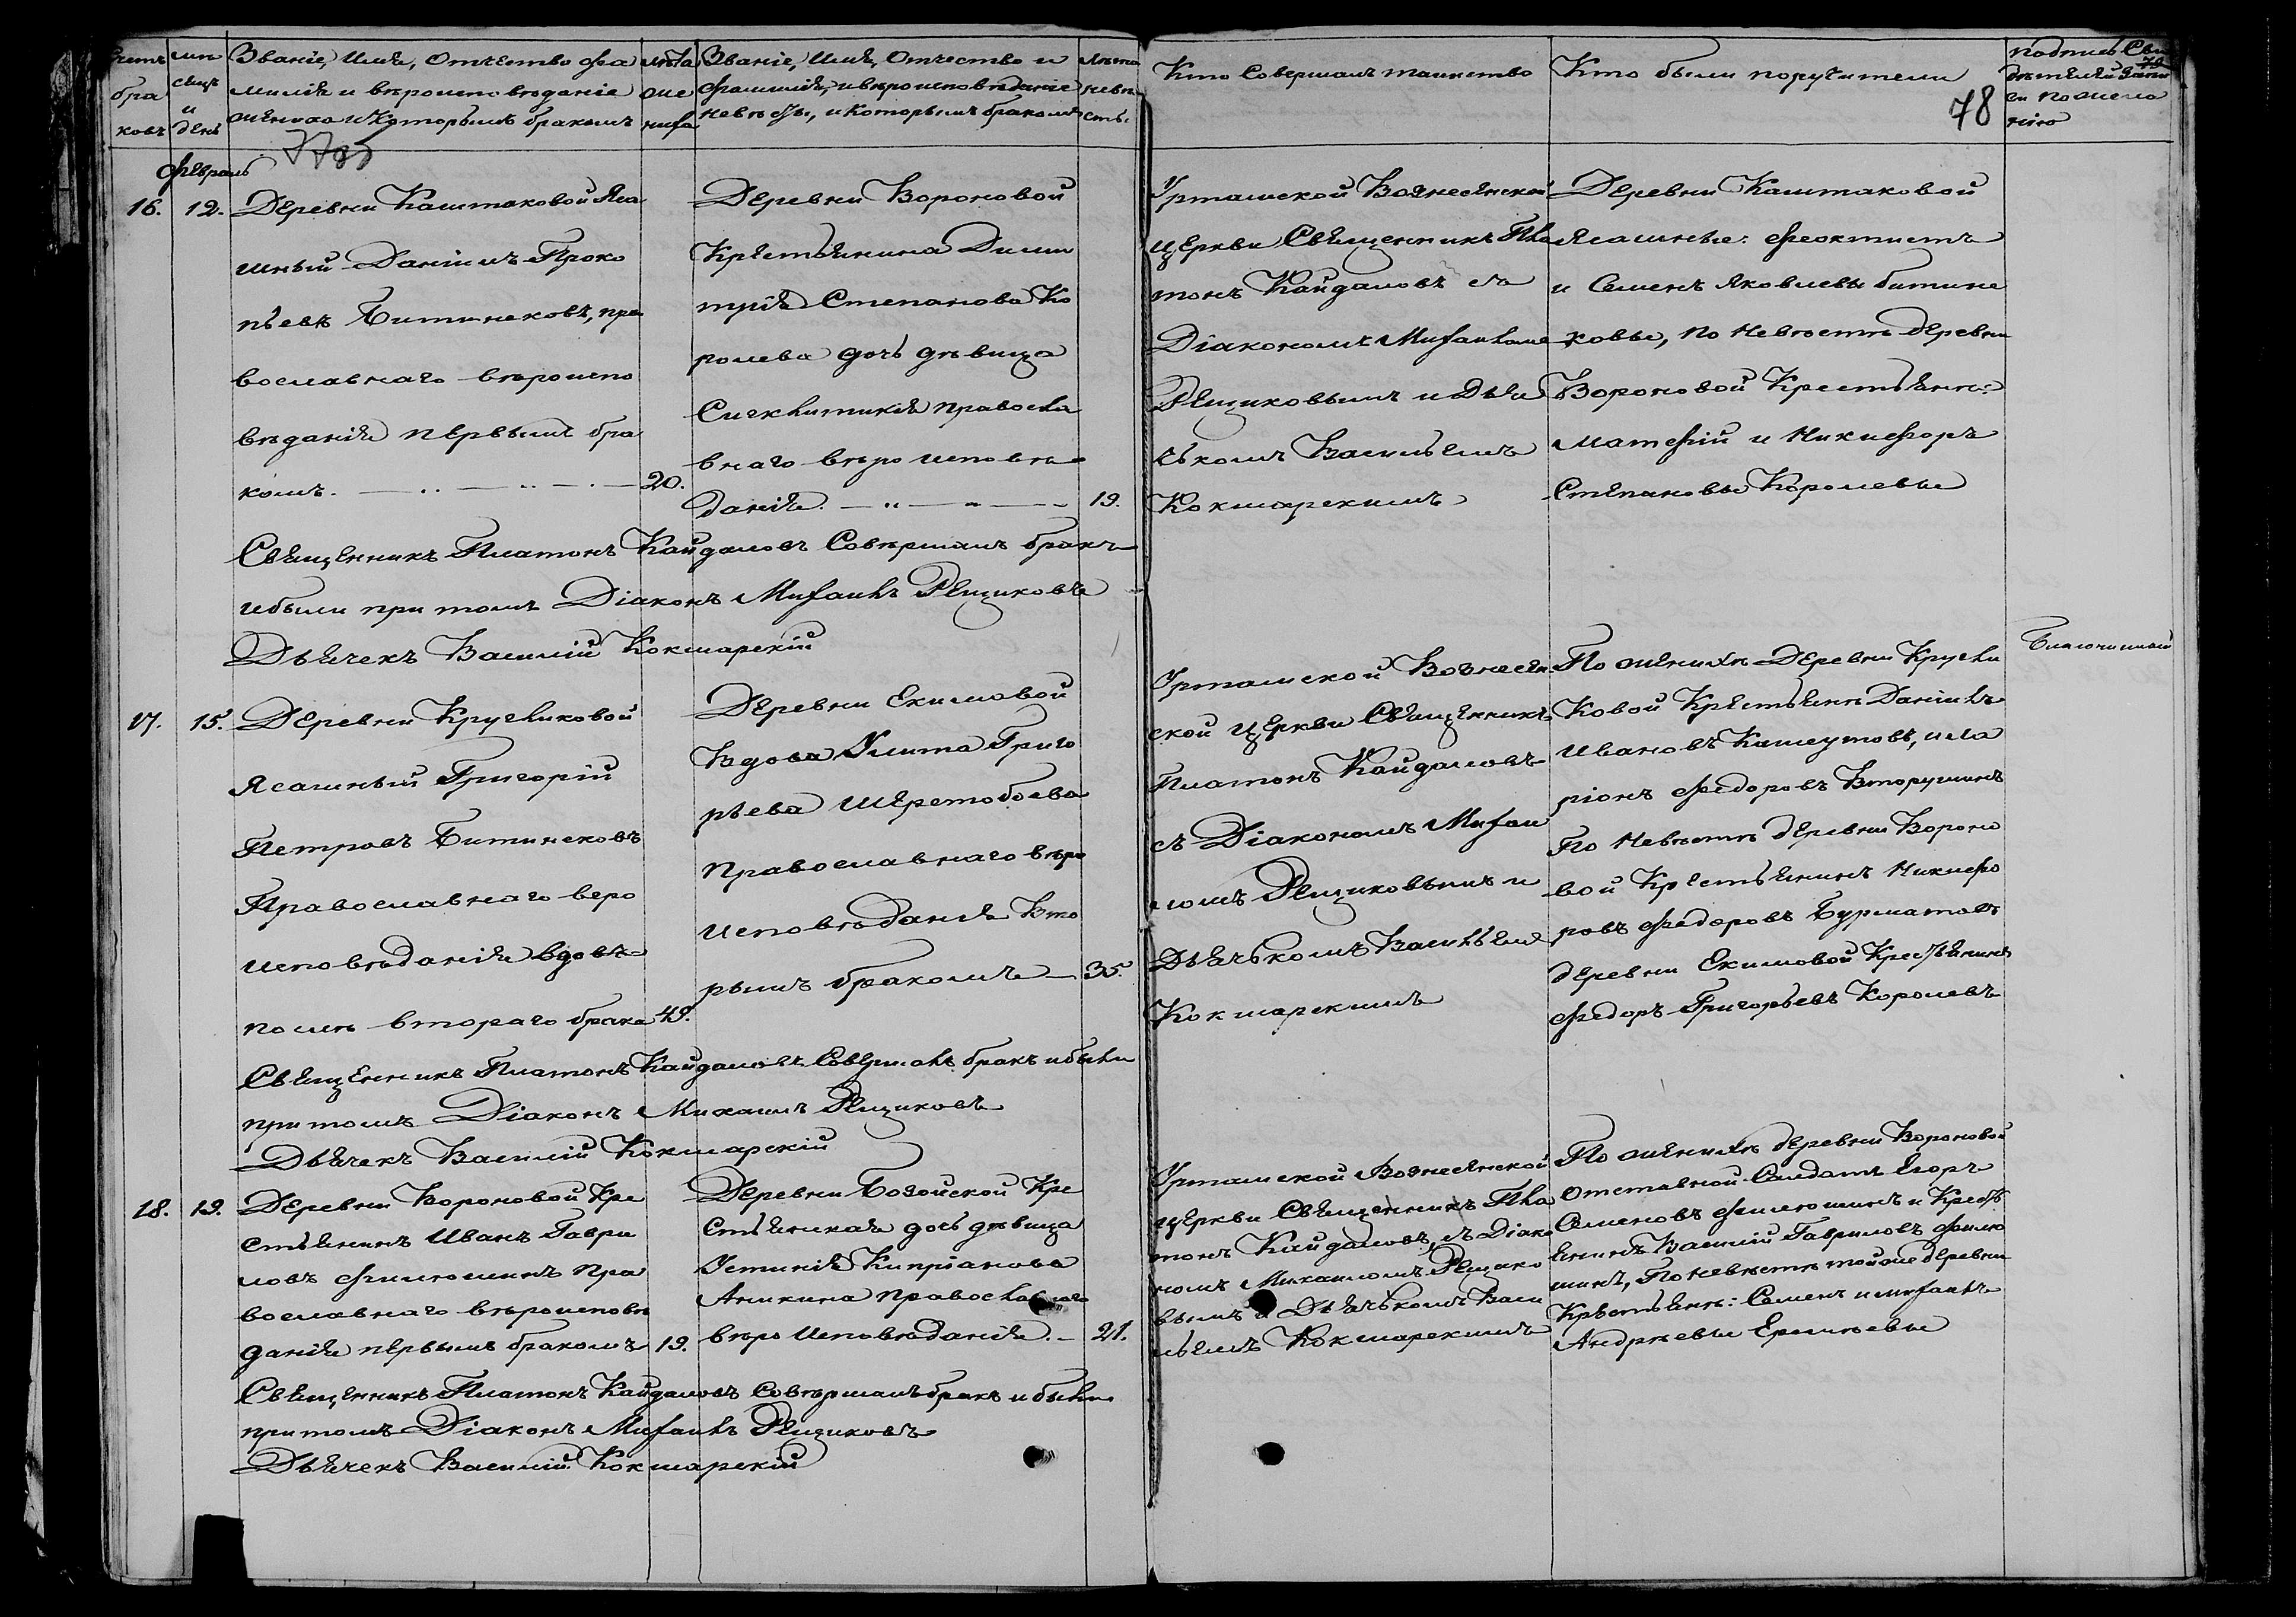 Счетъ
бра
ковъ
мѣ
сяцъ
и
день
Званіе, Имя, Отчество фа
милія и вѣроисповѣданіе
жениха и Которымъ бракомъ
лѣта
же
ниха
Званіе, Имя, Отчество и
фамилія, и вѣроисповѣданіе
невѣсты, и которымъ бракомъ
лѣта
невѣ
сты.
Кто Совершалъ таинство
Кто были поручители
78
подпись Сви
дѣтелей запи
си по жела
нію
79
Февраль
16.
12.
Деревни Каштаковой Яса
шный Даніилъ Проко
пьевъ Битинековъ, пра
вославнаго вѣроиспо
вѣданія первымъ бра
комъ.
20.
Деревни Вороновой
Крестьянина Дими
трія Степанова Ко
ролева дочь дѣвица
Сигклитикія правосла
внаго вѣро исповѣ
данія.
19.
Уртамской Вознесенской
церкви Священникъ Пла
тонъ Кайдаловъ съ
Діакономъ Михаиломъ
Рещиковымъ и Дья
чькомъ Васильемъ
Кокшарскимъ
Деревни Каштаковой
Ясашные: Феоктистъ
и Семенъ Яковлевы битине
ковы, по Невѣстѣ деревни
Вороновой Крестьяни:
матфій и Никифоръ
Степановы Королевы
Священникъ Платонъ Кайдаловъ Совѣршалъ бракъ
и были при томъ Діаконъ Михаилъ Рещиковъ
Дьячекъ Василій Кокшарскій
17.
15.
Деревни Крусликовой
Ясашный Григорій
Петровъ Битинековъ
Православнаго веро
исповѣданія вдовъ
полѣ втораго брака
49.
Деревни Екимовой
Вдова Улита Григо
рьева Шеретобоева
Православнаго вѣро
исповѣданія Вто
рымъ бракомъ
35.
Уртамской Вознесен
ской церкви Священникъ
Платонъ Кайдаловъ
съ Діакономъ Михаи
ломъ Рещиковымъ и
Дьячькомъ Васильемъ
Кокшарскимъ
По женихѣ Деревни Крусли
Ковой Крестьяни Даніилъ
Ивановъ Кашеутовъ, ила
ріонъ Федоровъ Вторушинъ
По Невѣстѣ деревни Вороно
вой Крестьянинъ Никифо
ровъ Федоровъ Бурматовъ
деревни Екимовой Крестьянинъ
Федоръ Григорьевъ Королевъ
Благочинный
Священникъ Платонъ Кайдаловъ Совершалъ бракъ и были
притомъ Діаконъ Михаилъ Рещиковъ
Дьячекъ Василій Кокшарскій
18.
19.
Деревни Вороновой Кре
стьянинъ Иванъ Гаври
ловъ Филюшинъ Пра
вославнаго вѣроисповѣ
данія первымъ бракомъ
19.
Деревни Бозойской Кре
стьянская дочь дѣвица
Устинія Кипріанова
Аникина Православнаго
вѣро исповѣданія.
21.
Уртамской Вознесенской
церкви Священникъ Пла
тонъ Кайдаловъ, съ Діако
номъ Михаиломъ Рещико
вымъ и Дьячькомъ Васи
льемъ Кокшарскимъ
По женихѣ деревни Вороновой
Отставной Салдатъ Егоръ
Семеновъ Филюшинъ и Кресть
янинъ Василій Гавриловъ Филю
шинъ, По невѣстѣ той же деревни
Крѣстьяни: Семенъ и михаилъ
Андрѣевы Еремѣевы
Священникъ Платонъ Кайдаловъ Совѣршалъ бракъ и были
притомъ Діаконъ Михаилъ Рещиковъ
Дьячекъ Василій Кокшарскій